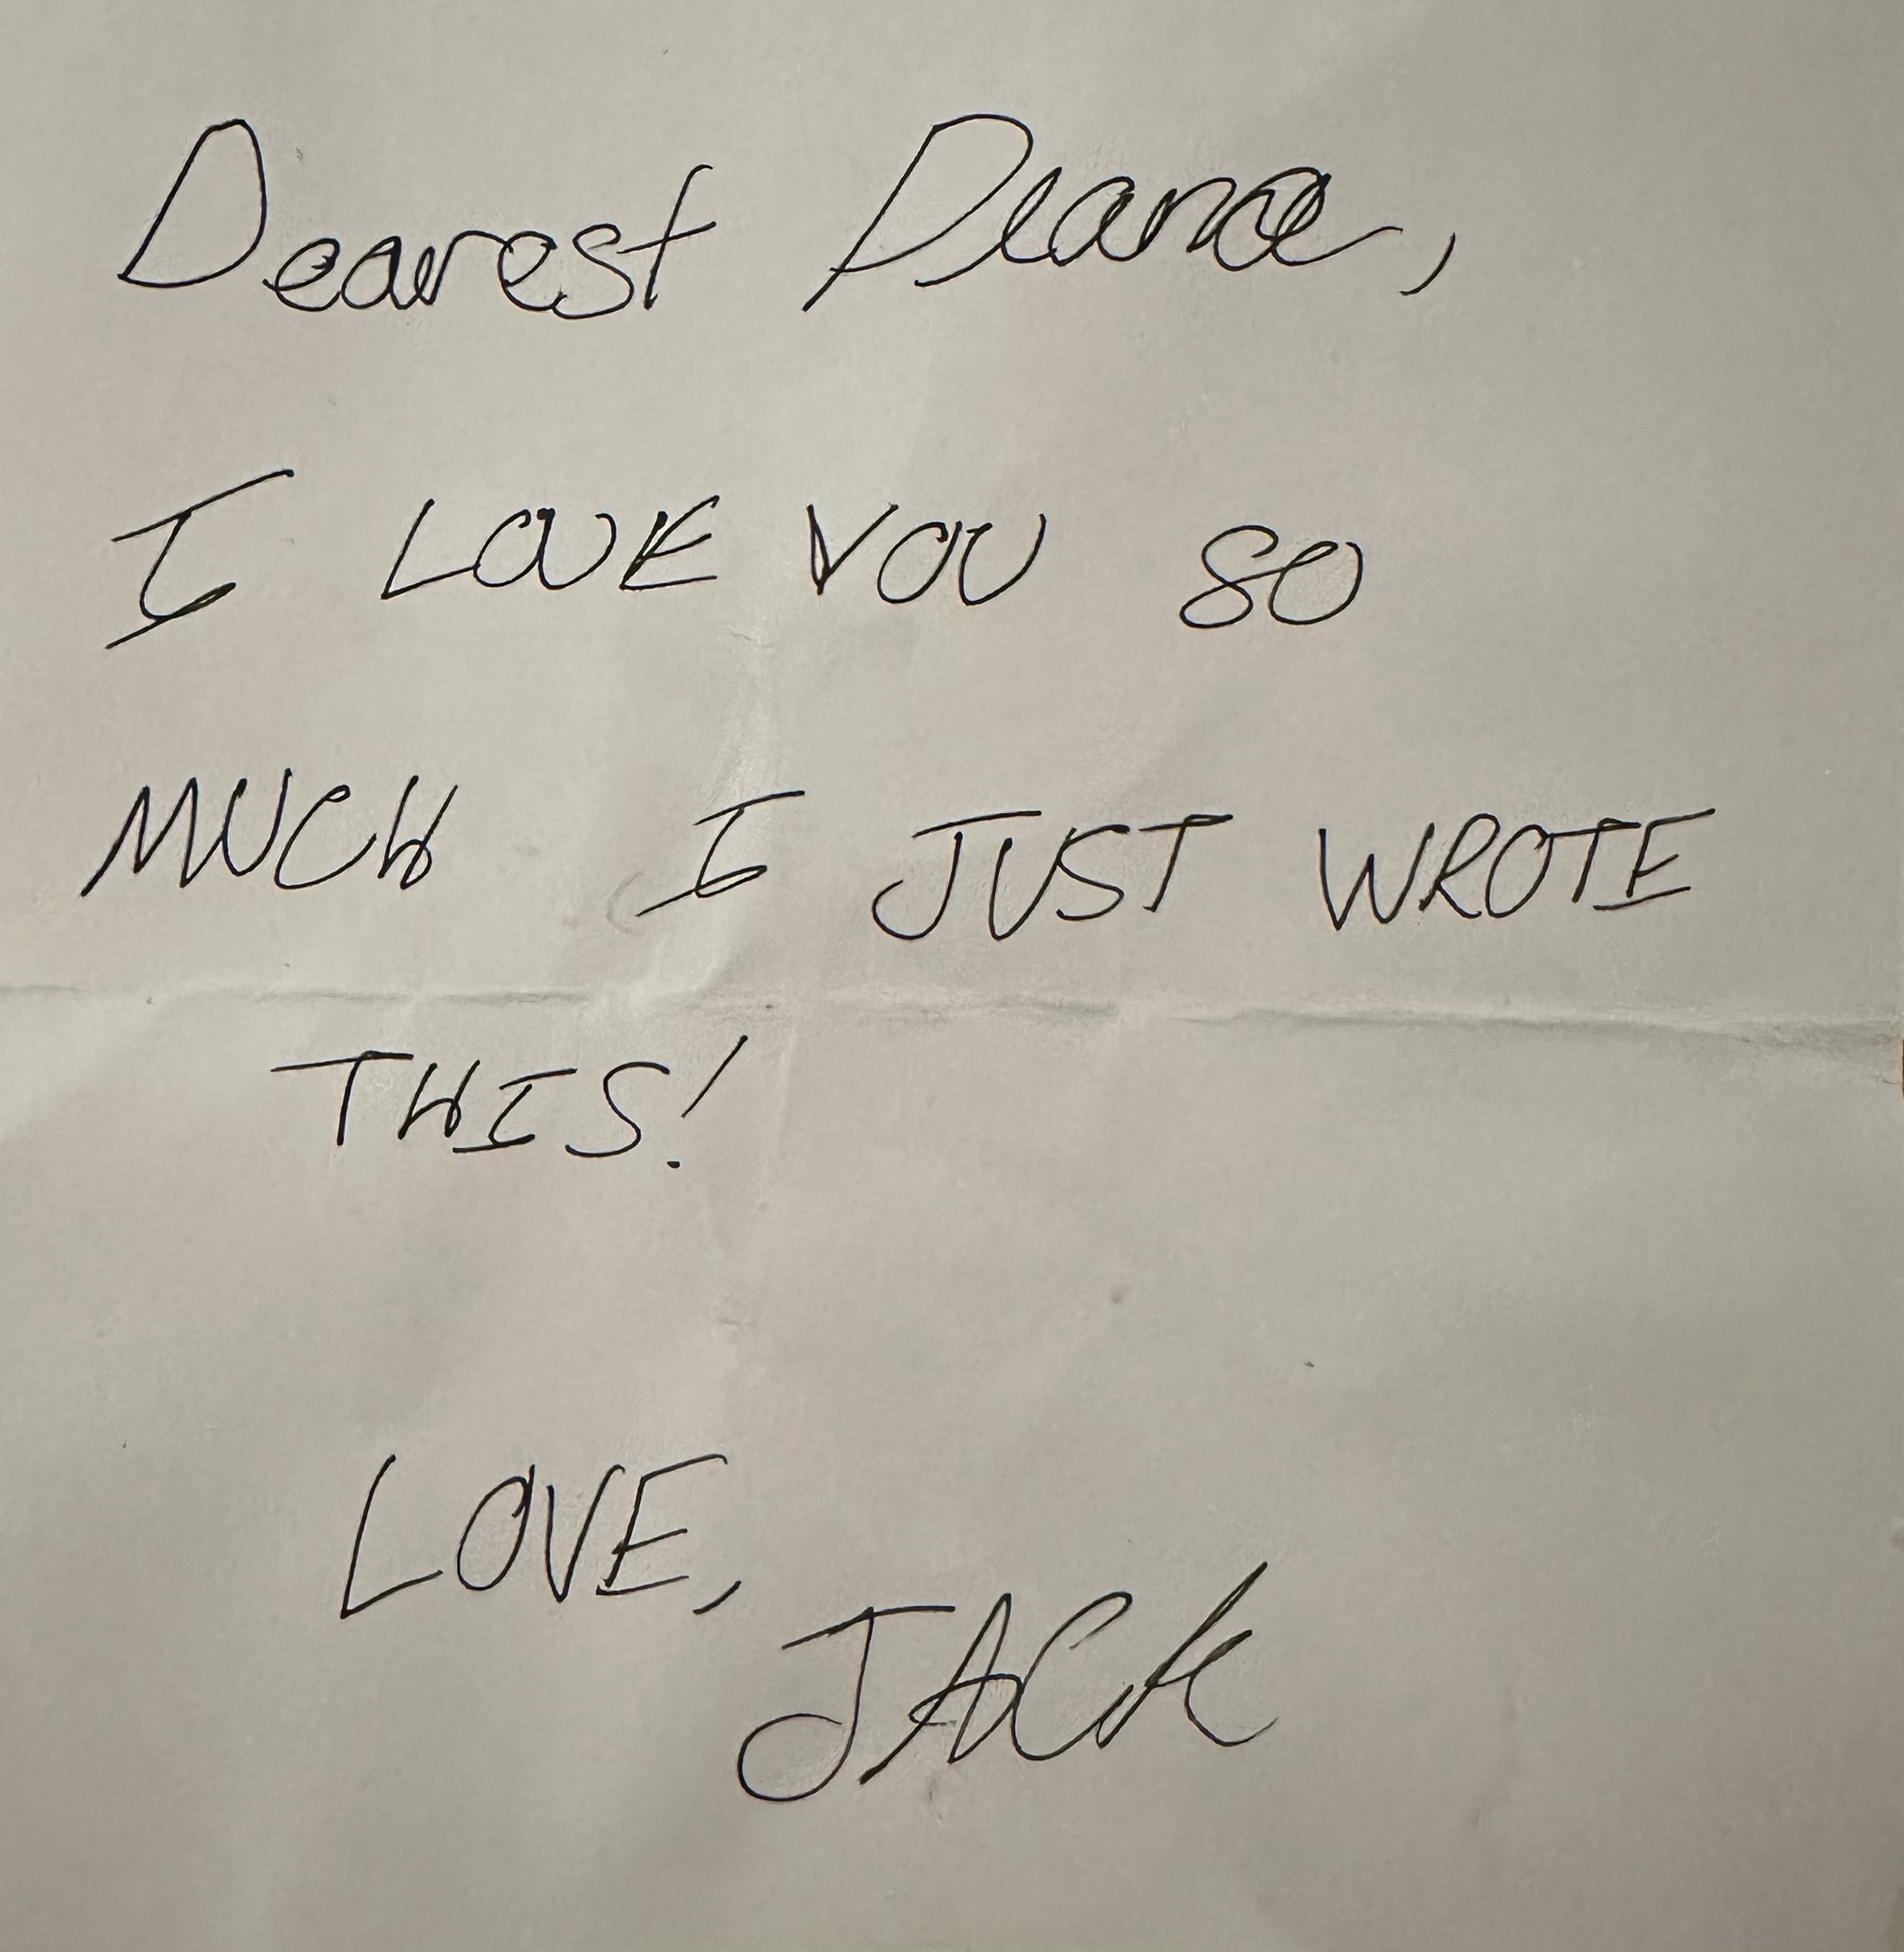 Dearest Diana,
I LOVE YOU SO
MUCH I JUST WROTE
THIS!
LOVE,
JACK